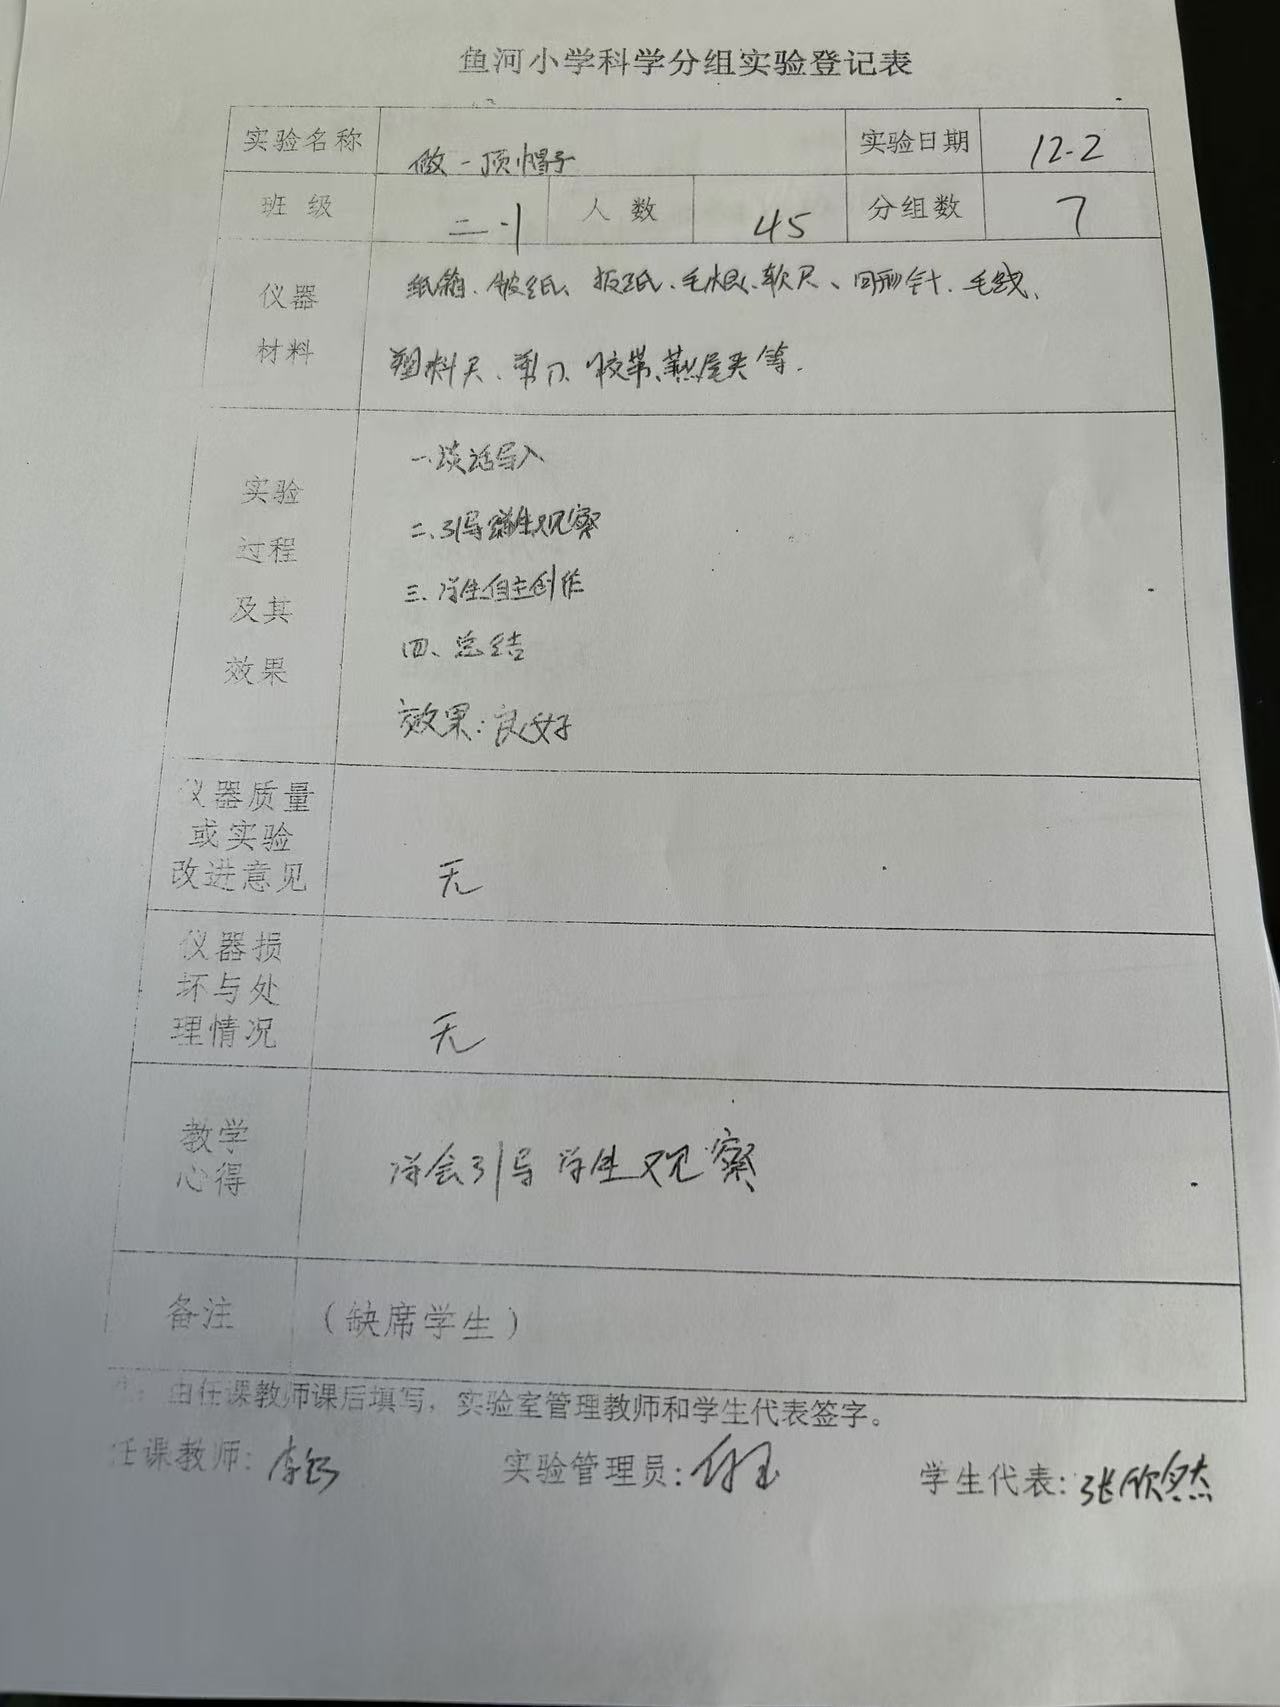 鱼河小学科学分组实验登记表
实验名称 做一顶帽子 实验日期 12.2
班级 二.1 人数 45 分组数 7
仪器材料
纸箱、皱纸、板纸、毛根、软尺、回形针、毛线、
塑料尺、剪刀、胶带、燕尾夹等.
实验过程及其效果
一.谈话导入
二.引导学生观察
三.学生自主创作
四、总结
效果:良好
仪器质量或实验改进意见 无
仪器损坏与处理情况 无
教学心得 学会引导学生观察
备注 (缺席学生)
由任课教师课后填写,实验室管理教师和学生代表签字。
任课教师: 实验管理员: 学生代表:张欣然